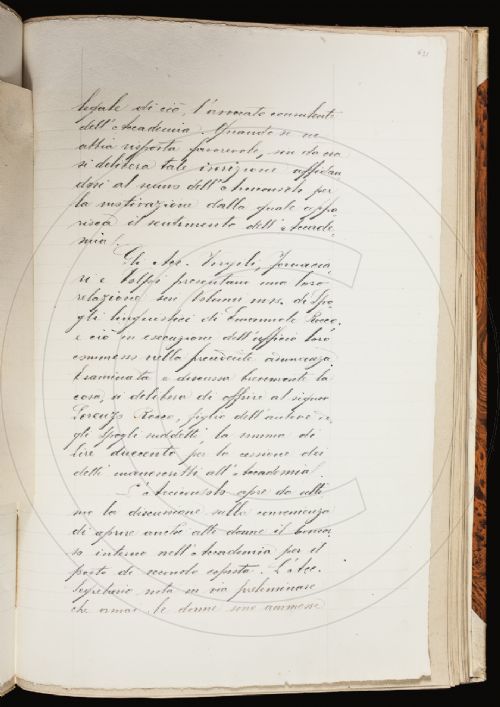 631
legale di ciò, l'avvocato consulente
dell'Accademia. Quando se ne
abbia risposta favorevole, sin da ora
si delibera tale iscrizione affidan
dosi al senno dell'Arciconsolo per
la motivazione dalla quale appa
risca il sentimento dell'Accade-
mia.
Gli Acc. Vergili, Fornaccia
ri e Volpi presentano una loro
relazione sui volumi ms. di Spo
gli linguistici di Emanuele Rocco,
e ciò in esecuzione dell'ufficio loro
commesso nella precedente adunanza
Esaminata e discussa brevemente la
cosa, si delibera di offrire al signor
Lorenzo Rocco, figlio dell'autore de
gli Spogli suddetti, la somma di
Lire duecento per la cessione dei
detti manoscritti all'Accademia.
L'Arciconsolo apre da ulti
mo la discussione sulla convenienza
di aprire anche alle donne il
interno nell'Accademia per il
posto di secondo copista. L'Acc.
Segretario nota in via preliminare
che ormai le donne sono ammesse